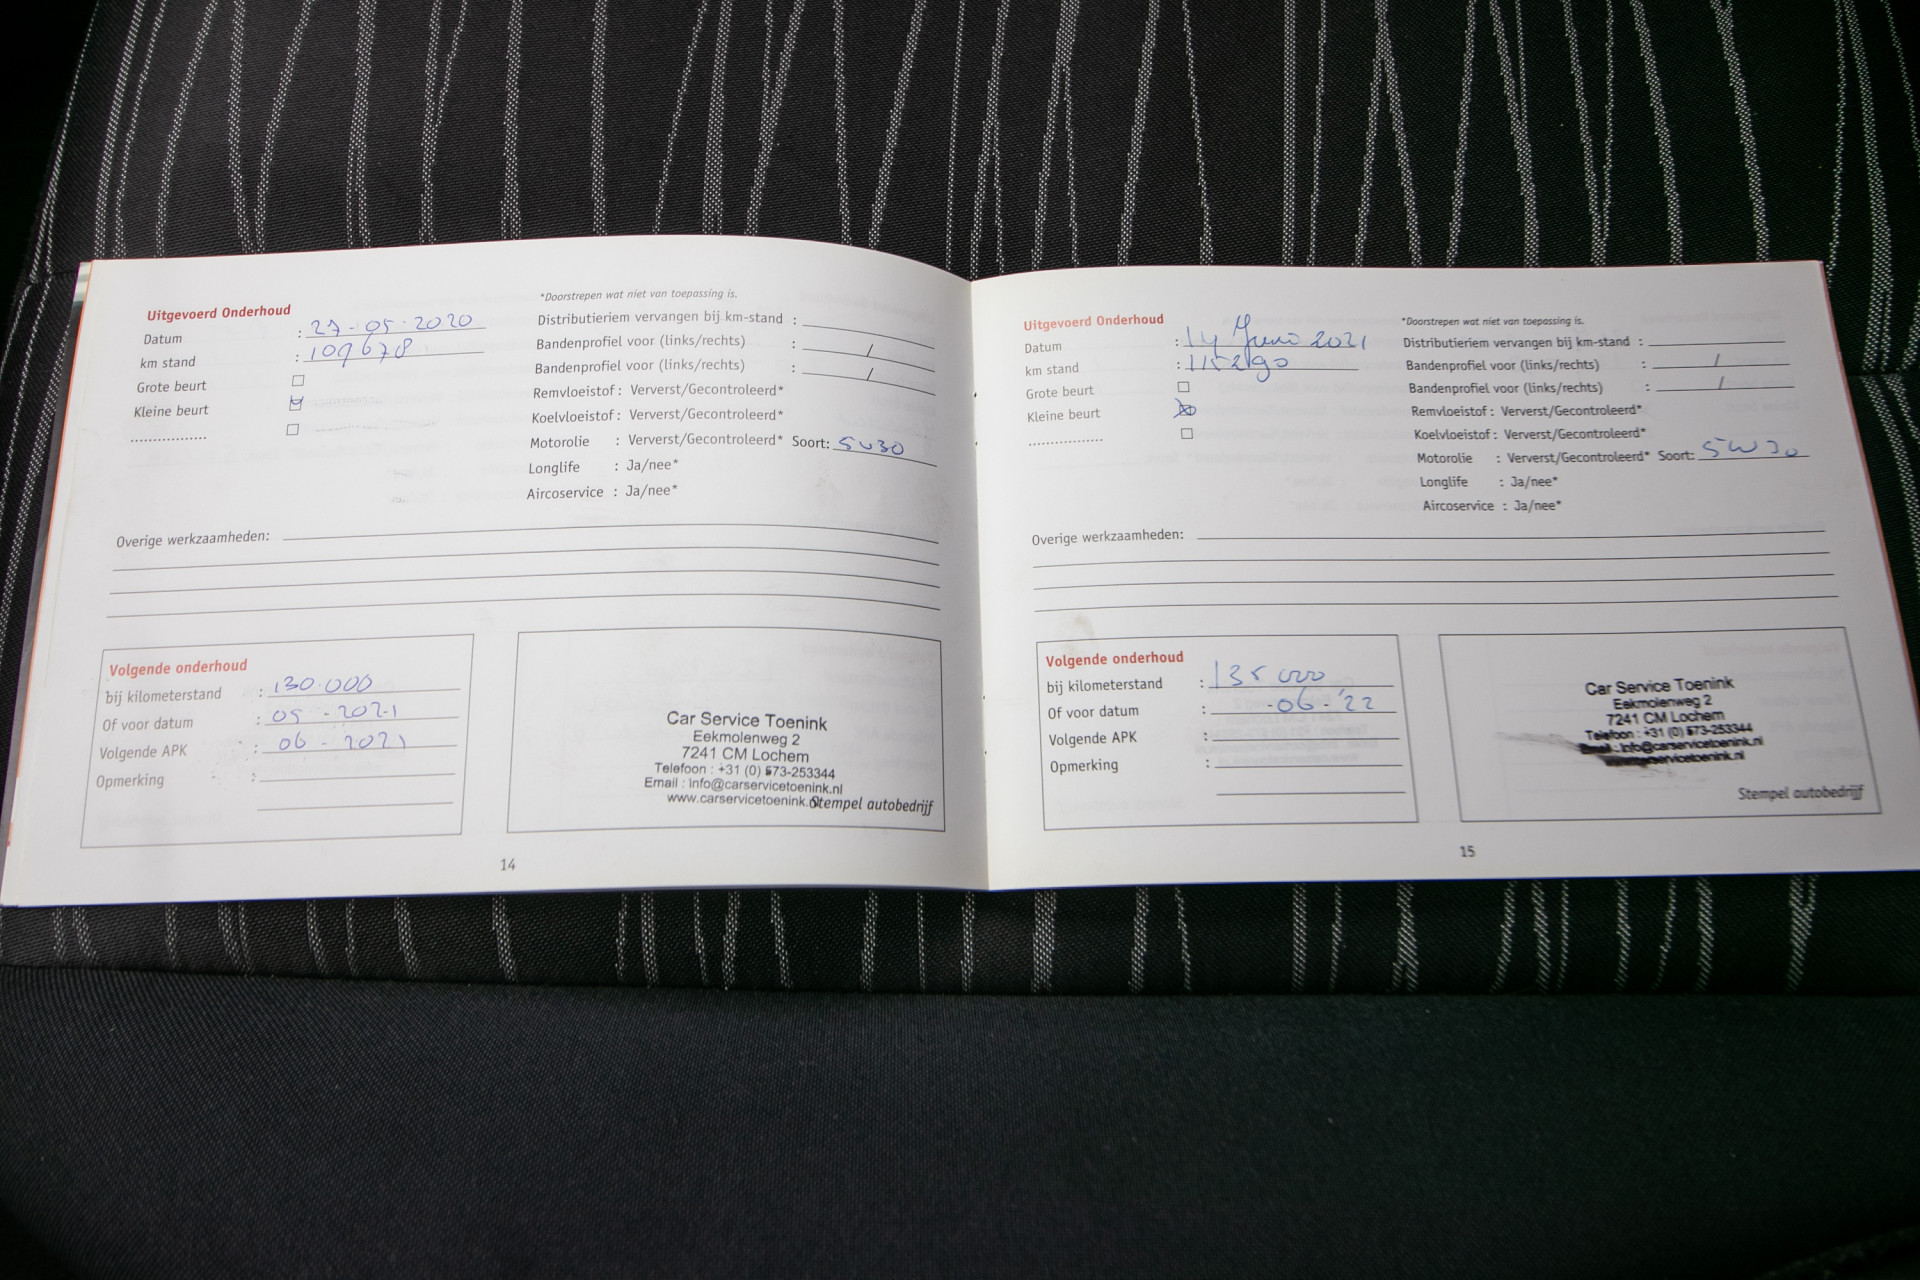 Uitgevoerd Onderhoud
Datum : 27-05-2020
km stand : 109678
Grote beurt
Kleine beurt
.................
*Doorstrepen wat niet van toepassing is.
Distributieriem vervangen bij km-stand :
Bandenprofiel voor (links/rechts) : /
Bandenprofiel voor (links/rechts) : /
Remvloeistof : Ververst/Gecontroleerd*
Koelvloeistof : Ververst/Gecontroleerd*
Motorolie : Ververst/Gecontroleerd* Soort: 5w30
Longlife : Ja/nee*
Aircoservice : Ja/nee*
Overige werkzaamheden:
Volgende onderhoud
bij kilometerstand : 130.000
Of voor datum : 05 - 2021
Volgende APK : 06 - 2021
Opmerking :
Car Service Toenink
Eekmolenweg 2
7241 CM Lochem
Telefoon : +31 (0) 573-253344
Email : info@carservicetoenink.nl
www.carservicetoenink.
Stempel autobedrijf
14
Uitgevoerd Onderhoud
Datum : 14 Juni 2021
km stand : 115290
Grote beurt
Kleine beurt
.................
*Doorstrepen wat niet van toepassing is.
Distributieriem vervangen bij km-stand :
Bandenprofiel voor (links/rechts) : /
Bandenprofiel voor (links/rechts) : /
Remvloeistof : Ververst/Gecontroleerd*
Koelvloeistof : Ververst/Gecontroleerd*
Motorolie : Ververst/Gecontroleerd* Soort: 5W30
Longlife : Ja/nee*
Aircoservice : Ja/nee*
Overige werkzaamheden:
Volgende onderhoud
bij kilometerstand : 135000
Of voor datum : -06-'22
Volgende APK :
Opmerking :
Car Service Toenink
Eekmolenweg 2
7241 CM Lochem
Telefoon : +31 (0) 573-253344
Email : info@carservicetoenink.nl
www.carservicetoenink.nl
Stempel autobedrijf
15